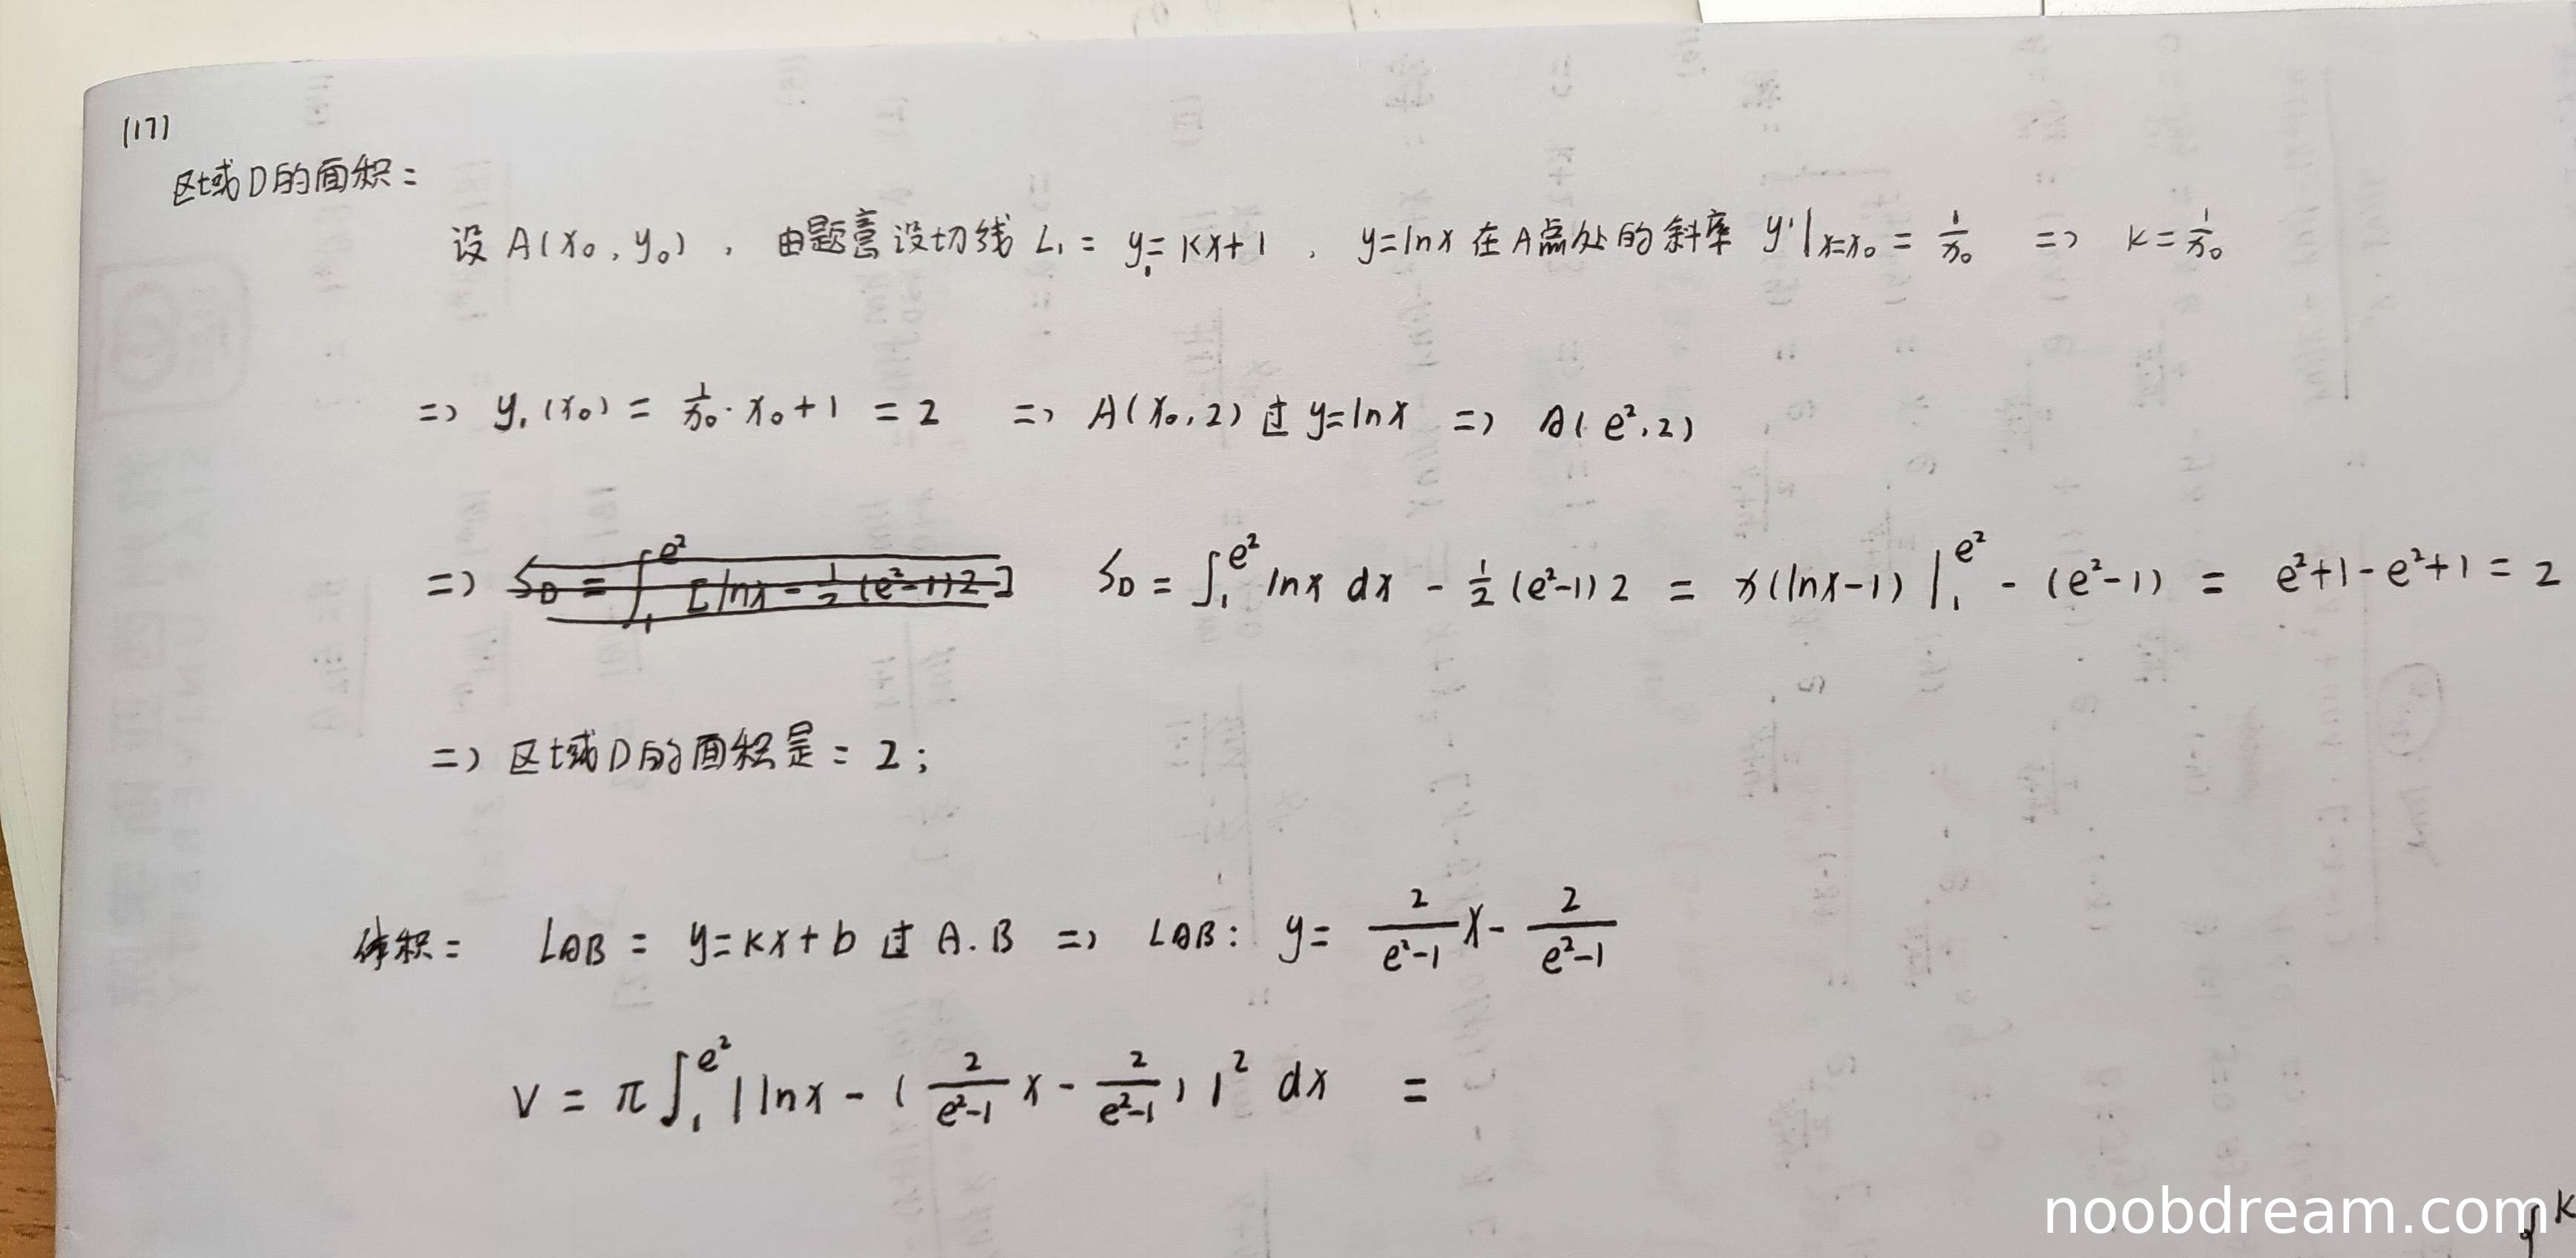 (17)
区域D的面积：
设 A(x₀, y₀)，由题意设切线 L₁：y₁=kx+1，y=lnx 在A点处的斜率 y'|x=x₀ = 1/x₀ => k = 1/x₀
=> y₁(x₀) = 1/x₀ · x₀ + 1 = 2 => A(x₀, 2) 过 y=lnx => A(e², 2)
=> S_D = ∫₁^e² [lnx - 1/2 (e²-1)2] S_D = ∫₁^e² lnx dx - 1/2 (e²-1)2 = x(lnx-1)|₁^e² - (e²-1) = e²+1-e²+1 = 2
=> 区域D的面积是：2；
体积： L_AB：y=kx+b 过 A.B => L_AB：y = 2/(e²-1) x - 2/(e²-1)
V = π∫₁^e² |lnx - (2/(e²-1) x - 2/(e²-1))|² dx =
noobdream.com